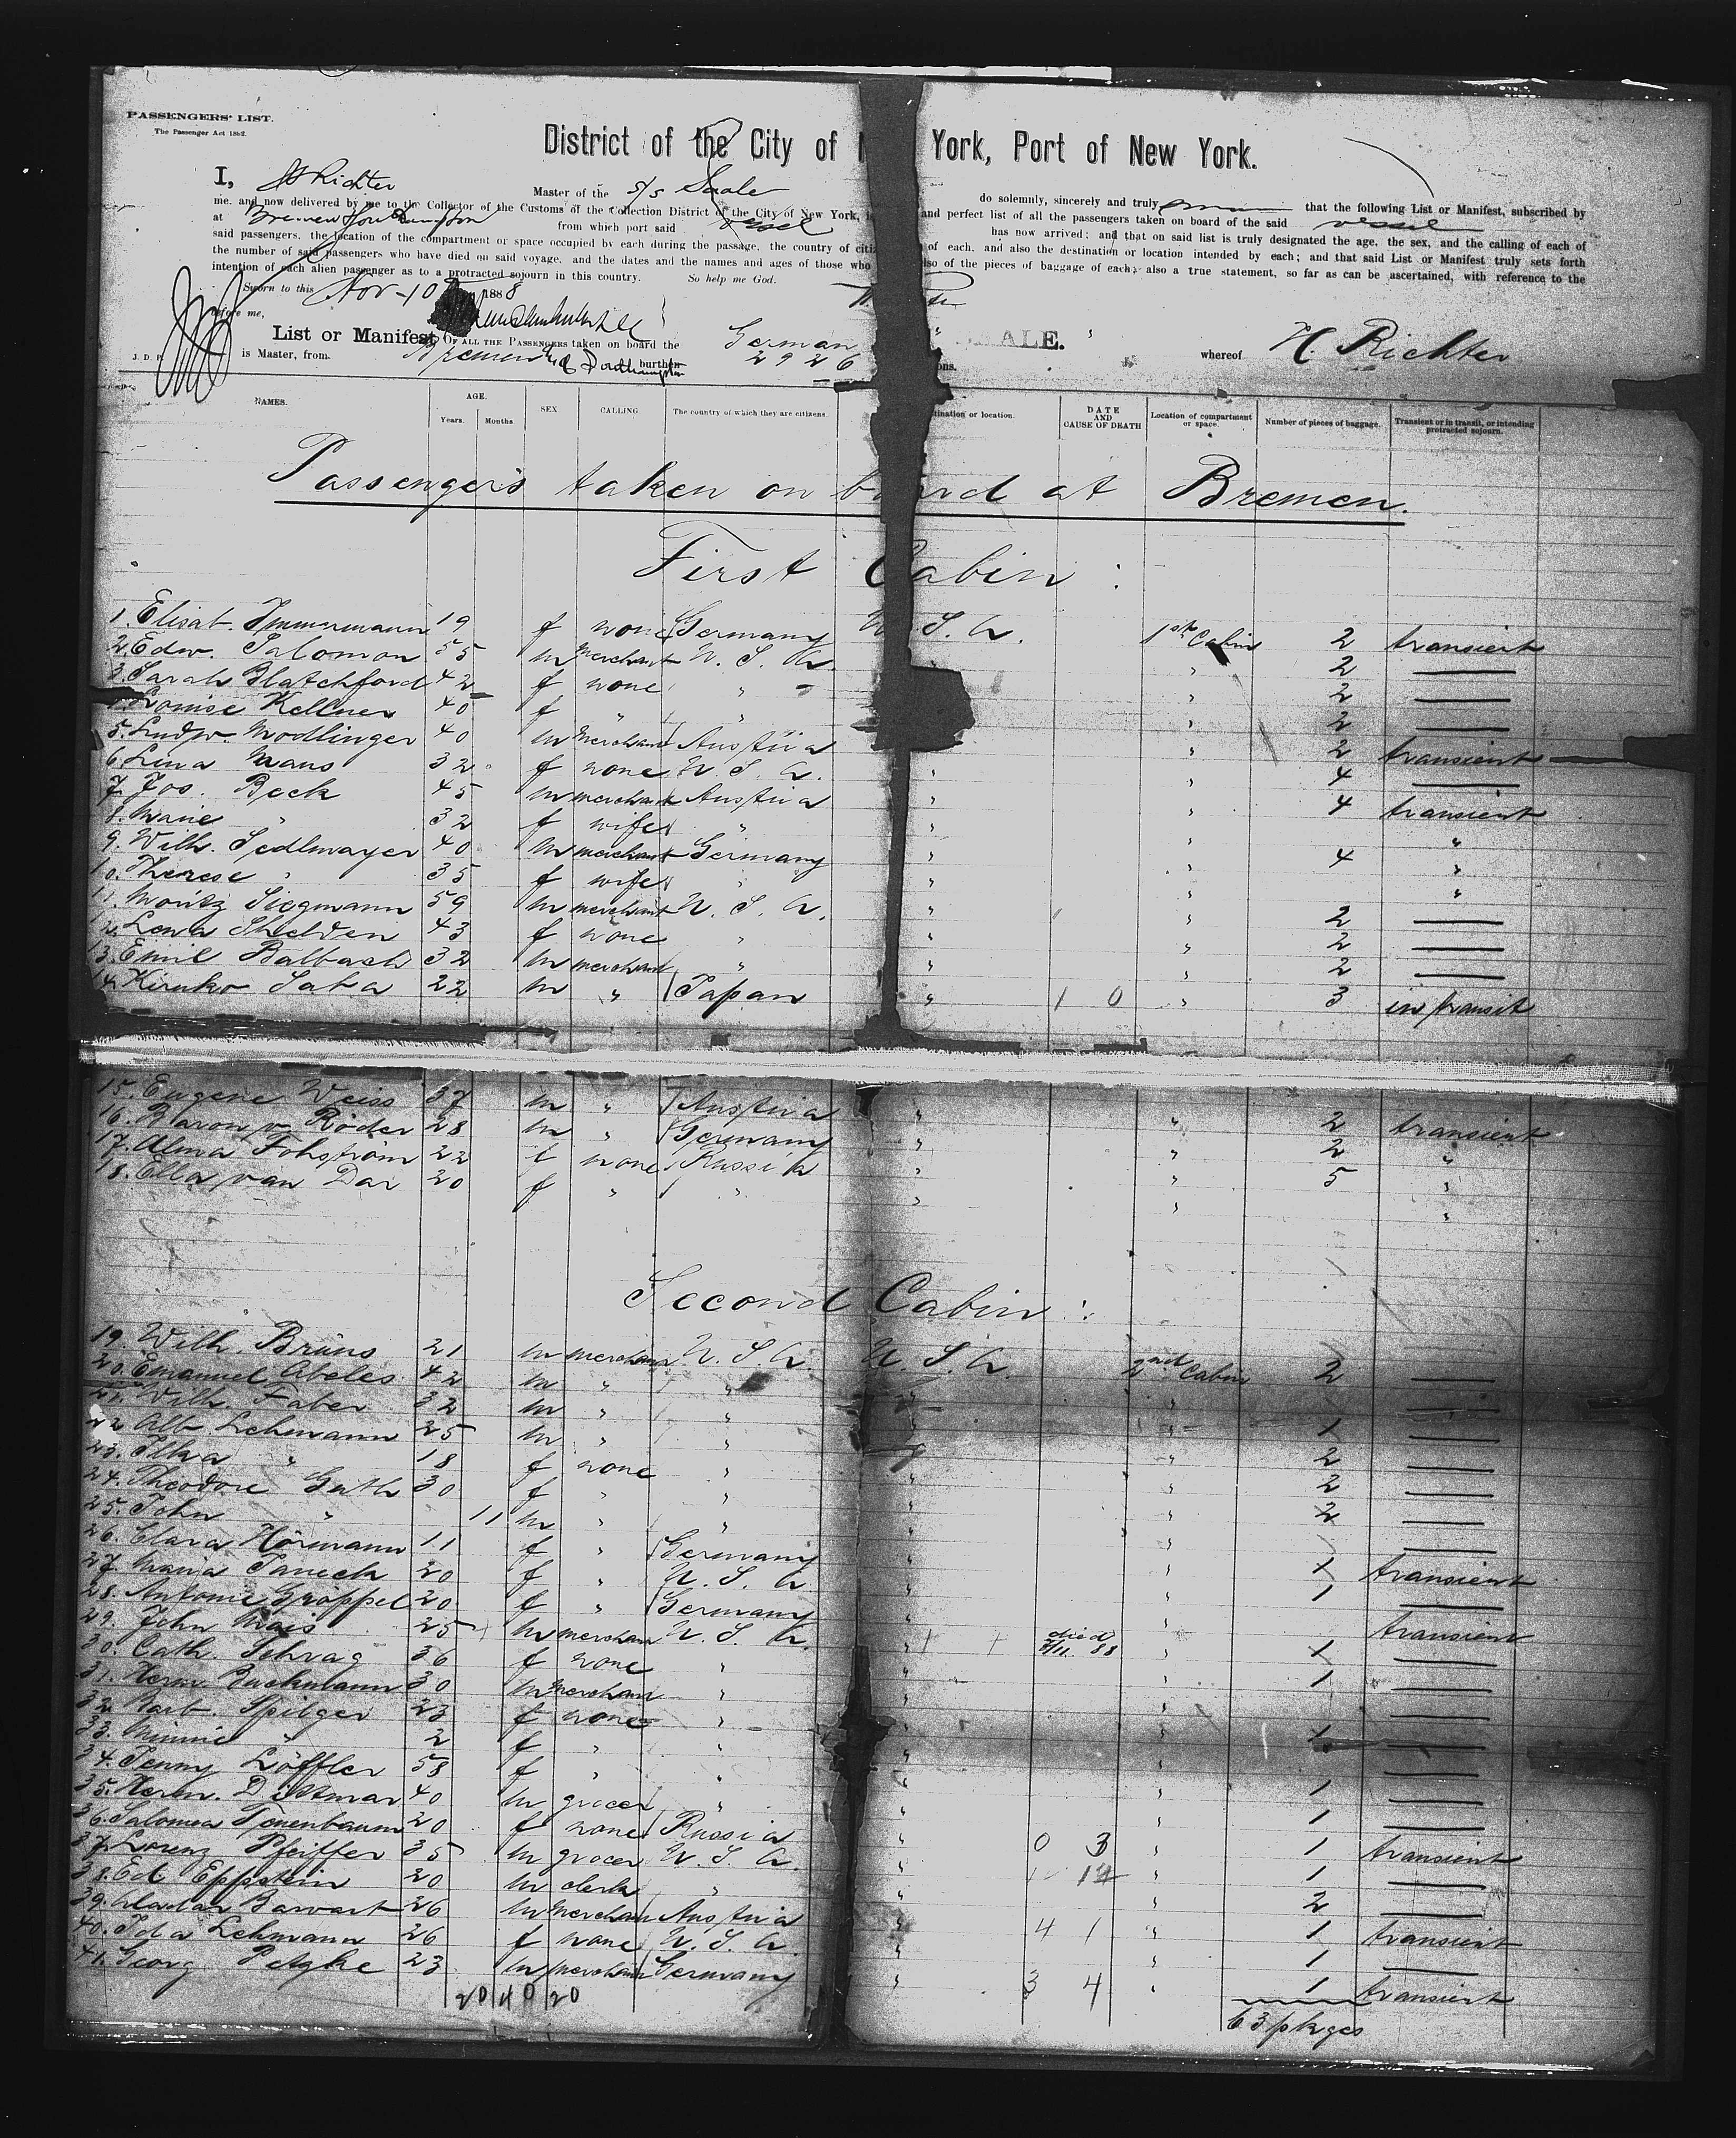 PASSENGERS' LIST.
The Passenger Act 1882.
District of the City of N York, Port of New York.
I, H Richter Master of the S/S Saale do solemnly, sincerely and truly that the following List or Manifest, subscribed by
me. and now delivered by me to the Collector of the Customs of the Collection District of the City of New York, is and perfect list of all the passengers taken on board of the said vessel
at Bremen & Southampton from which port said vessel has now arrived; and that on said list is truly designated the age, the sex, and the calling of each of
said passengers, the location of the compartment or space occupied by each during the passage, the country of citi of each, and also the destination or location intended by each; and that said List or Manifest truly sets forth
the number of said passengers who have died on said voyage, and the dates and the names and ages of those who lso of the pieces of baggage of each; also a true statement, so far as can be ascertained, with reference to the
intention of each alien passenger as to a protracted sojourn in this country. So help me God.
Sworn to this Nov-10 1888
before me,
List or Manifest OF ALL THE PASSENGERS taken on board the German ALE. whereof H. Richter
J. D. P. is Master, from. Bremen and Southampton burthen 2926 ons.
NAMES. AGE. SEX CALLING The country of which they are citizens. tination or location. DATE AND CAUSE OF DEATH Location of compartment or space. Number of pieces of baggage. Transient or in transit, or intending protracted sojourn.
Years. Months.
Passengers taken on board at Bremen.
First Cabin :
1. Elisab. Immermann 19 f none Germany U. S. A. 1st Cabin 2 transient
2. Edw. Salomon 55 m merchant U. S. A. " 2 —
3. Sarah Blatchford 42 f none " " 2 —
4. Louise Kellner 40 f " " " 2 —
5. Ludw. Modlinger 40 m merchant Austria " 2 transient
6. Lina Maas 32 f none U. S. A. " " 4 —
7. Jos. Beck 45 m merchant Austria " " 4 transient
8. Marie " 32 f wife " " " "
9. Wilh. Sedlmayer 40 m merchant Germany " " 4 "
10. Therese " 35 f wife " " " "
11. Moritz Siegmann 59 m merchant U. S. A. " " 2 —
12. Lena Shelden 43 f none " " " 2 —
13. Emil Balbach 32 m merchant " " " 2 —
14. Kiruko Saba 22 m " Japan " 1 0 " 3 in transit
15. Eugene Weiss 37 m " Austria " " 2 transient
16. Baron v. Röder 28 m " Germany " " 2 "
17. Alma Fohström 22 f none Russia " " 5 "
18. Ella van Dar 20 f " " " " "
Second Cabin :
19. Wilh. Brüns 21 m merchant U. S. A. U. S. A. 2nd Cabin 2 —
20. Emanuel Abeles 42 m " " " "
21. Wilh. Faber 32 m " " " " 1 —
22. Alb Lehmann 25 m " " " " 2 —
23. Ilka " 18 f none " " " 2 —
24. Theodore Guth 30 f " " " " 2 —
25. John " 11 m " " " " —
26. Clara Hörmann 11 f " Germany " " 1 transient
27. Maria Janech 20 f " U. S. A. " " 1 —
28. Antonie Gröppel 20 f " Germany " " transient
29. John Mais 25 m merchant U. S. A. died /11. 88 " 1 —
30. Cath. Schrag 36 f none " " " 1 —
31. Herm. Buchmann 30 m merchant " " " —
32. Barb. Spilger 23 f none " " " 1 —
33. Minnie " 2 f " " " " —
34. Jenny Löffler 58 f " " " " 1 —
35. Herm. Dittmar 40 m grocer " " " 1 —
36. Salomea Tenenbaum 20 f none Russia " 0 3 " 1 transient
37. Lorenz Pfeiffer 35 m grocer U. S. A. " " 1 —
38. Ed Eppstein 20 m clerk " " " 2 —
39. Barwart 26 m merchant Austria " 4 1 " 1 transient
40. Ida Lehmann 26 f none U. S. A. " " 1 —
41. Georg Petzke 23 m merchant Germany " 3 4 " 1 transient
20 40 20
63 pkges